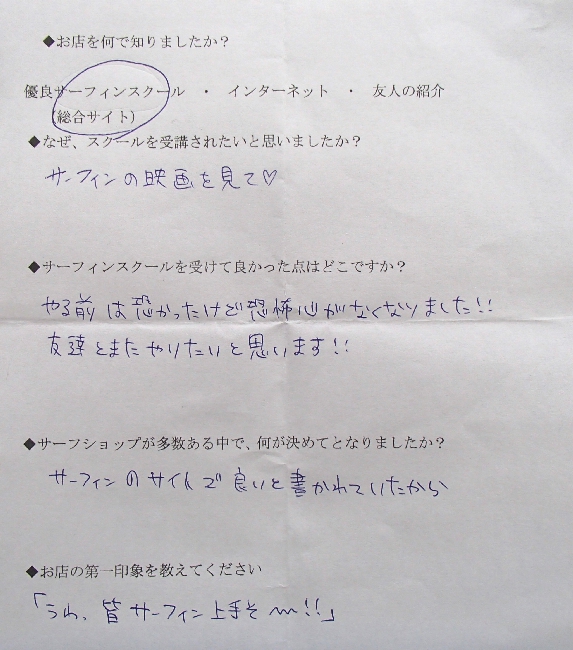 ◆お店を何で知りましたか？
優良サーフィンスクール ・ インターネット ・ 友人の紹介
（総合サイト）
◆なぜ、スクールを受講されたいと思いましたか？
サーフィンの映画を見て♡
◆サーフィンスクールを受けて良かった点はどこですか？
やる前は恐かったけど恐怖心がなくなりました!!
友達とまたやりたいと思います!!
◆サーフショップが多数ある中で、何が決めてとなりましたか？
サーフィンのサイトで良いと書かれていたから
◆お店の第一印象を教えてください
「うわ、皆サーフィン上手そ〜!!」